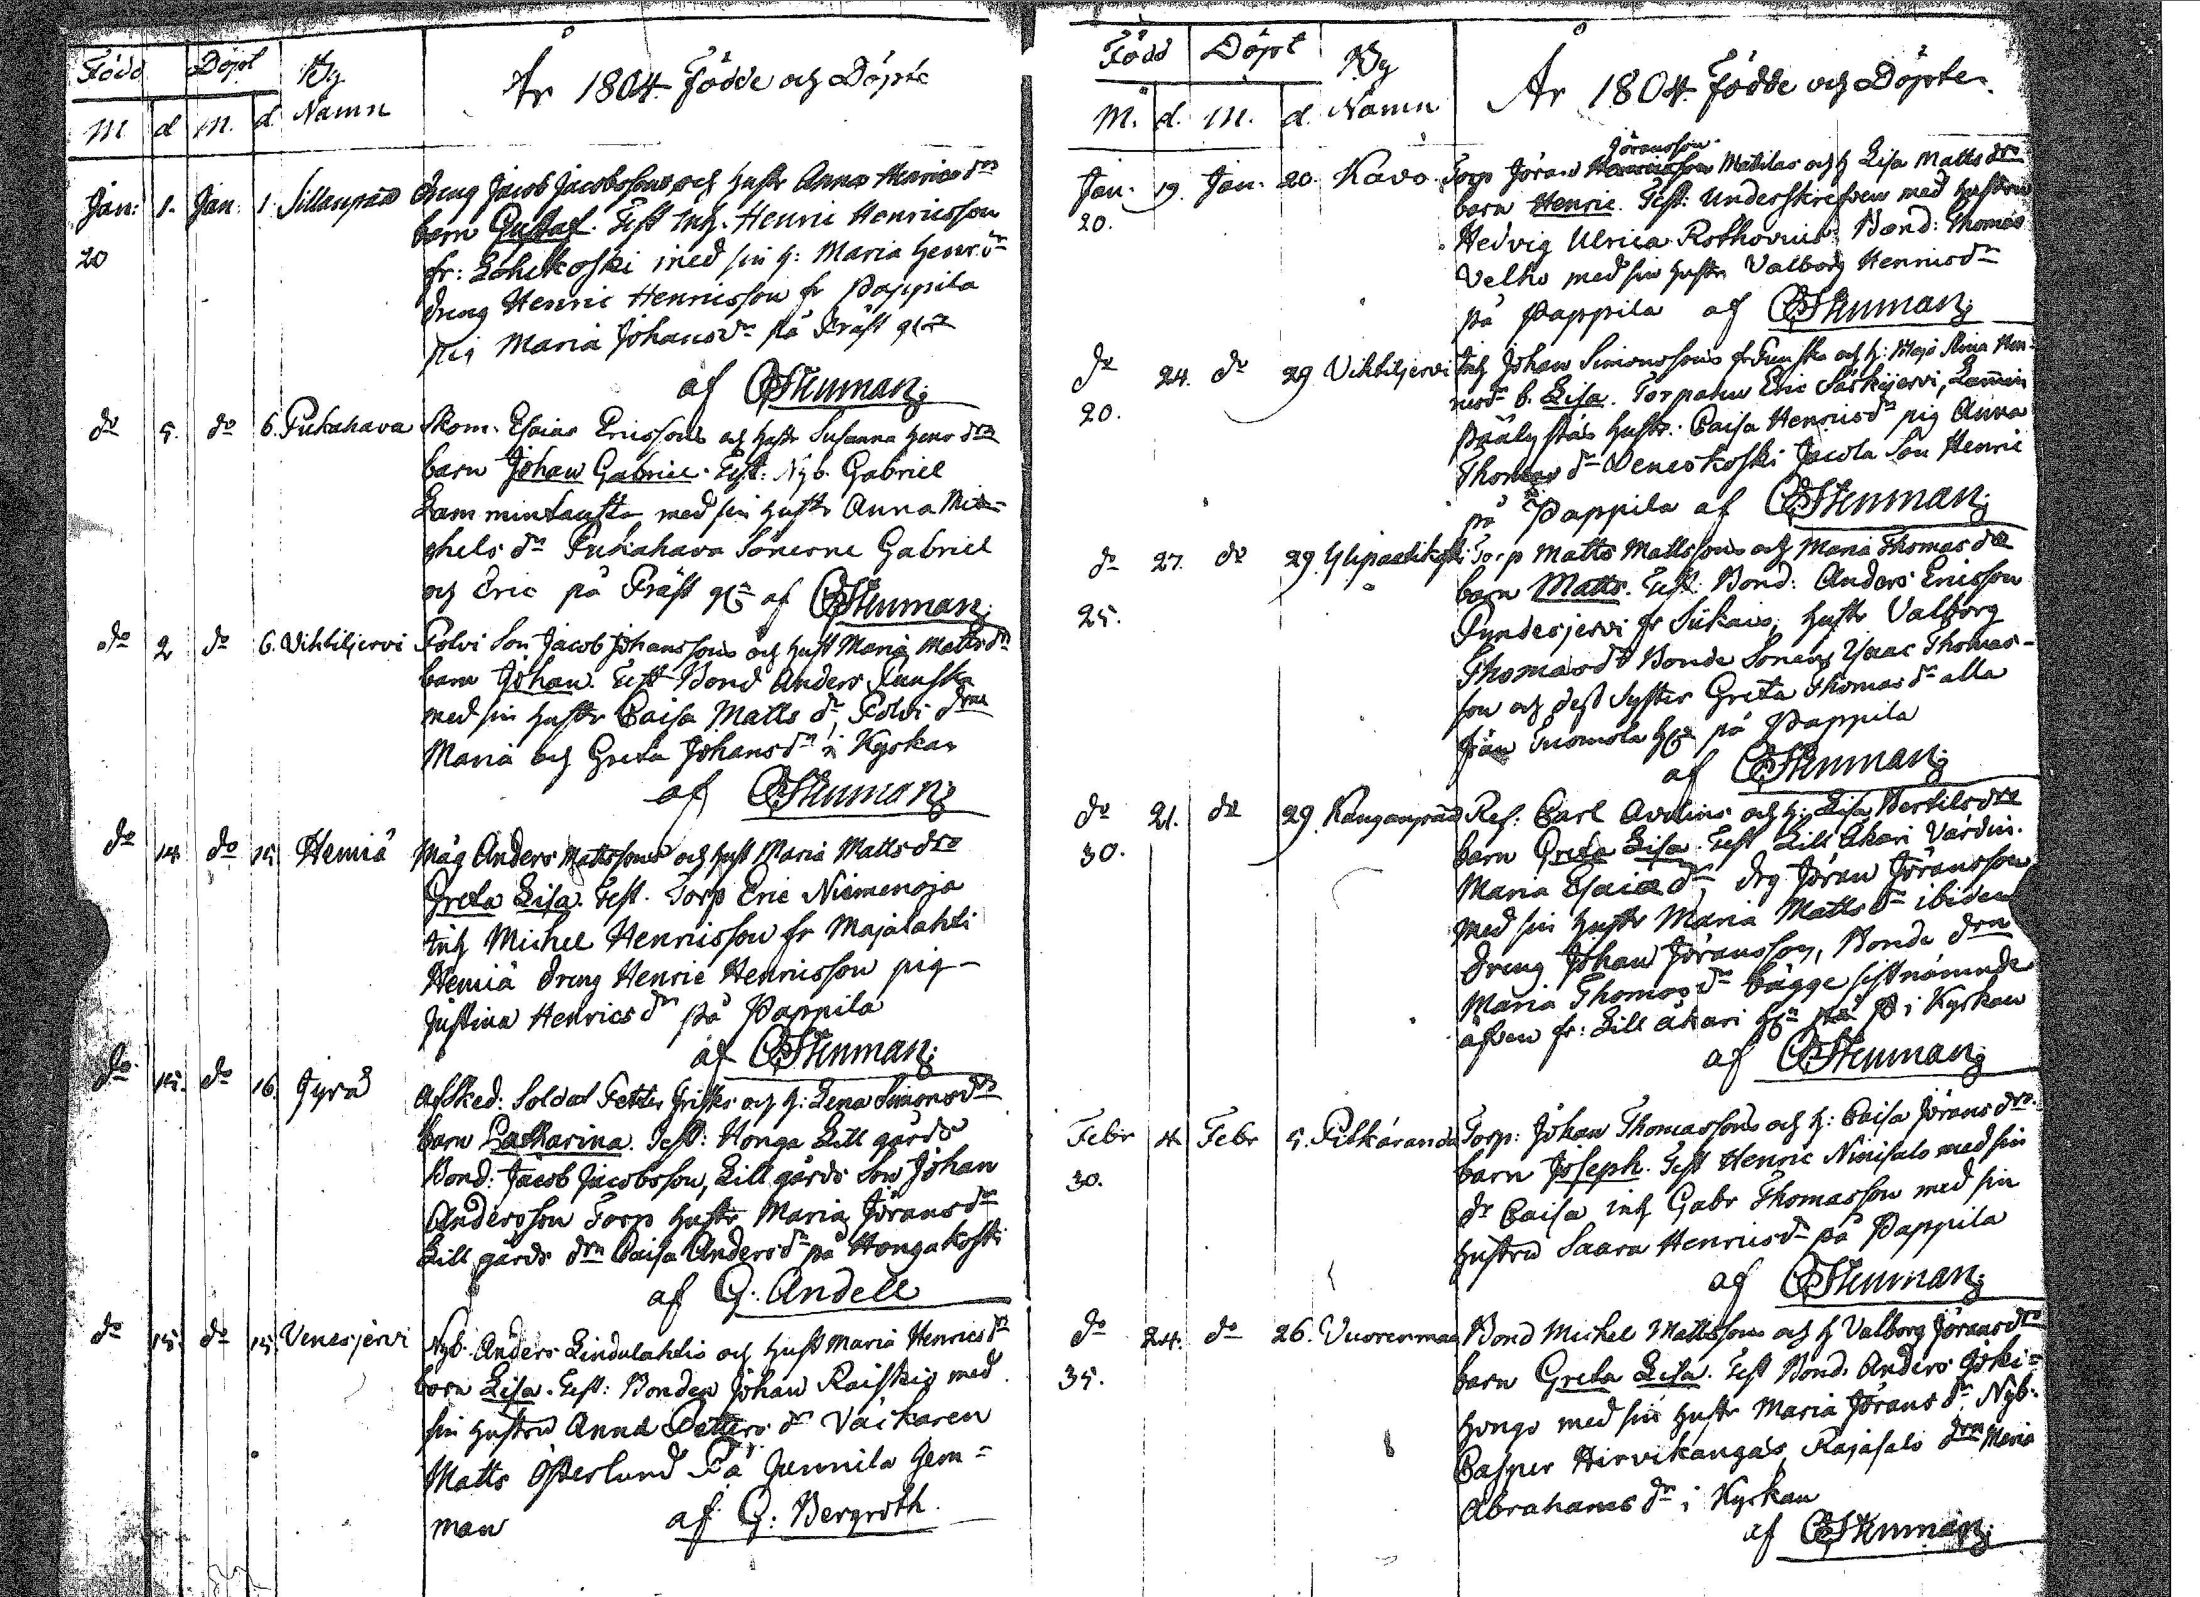 Född Döpt By
År 1804 Födde och Döpte
M d M. d. Namn
Jan: 1. Jan: 1. Sillanpää Dreng Jacob Jacobssons och hustr Anna Maria drs
20 barn Gustaf. Test Inh. Henric Henricsson
fr: Lohikoski med sin h: Maria Henr. dr
dreng Henric Henricsson fr Pappila
pig Maria Johansdr på Präst
af CStenman
do 5. do 6. Pukahava Skom. Esaias Ericssons och hustr Susanna Henr drs
barn Johan Gabriel. Test: Nyb. Gabriel
Lammintausta med sin hustr Anna Mi-
chels dr Pukahava Sönerne Gabriel
och Eric på Präst af CStenman
do 2 do 6. Vihtiljervi Polvi Son Jacob Johanssons och hust Maria Matts drs
barn Johan. Test Bond Anders Funska
med sin hustr Caisa Matts dr, Polvi drn
Maria och Greta Johansdr i Kyrkan
af CStenman
do 14 do 15 Hemiä Måg Anders Mattssons och hust Maria Matts drs
Greta Lisa. Test. Torp Eric Niemenoja
inh Michel Henricsson fr Majalahti
Hemiä dreng Henric Henricsson pig
Justina Henrics dr på Pappila
af CStenman
do 15. do 16. Jyrå Afsked: Soldat Petter Frisks och h: Lena Simons drs
barn Catharina. Test: Honga Lill gårds
Bond: Jacob Jacobsson, Lill gårds Son Johan
Andersson Torp hustr Maria Jörans dr
Lill gårds drn Caisa Anders dr på Hongakoski
af G. Andell
do 15. do 15. Venesjervi Nyb. Anders Lindulahtis och hust Maria Henrics drs
barn Lisa. Test: Bonden Johan Raiskio med
sin hustru Anna Petters dr Väikaren
Matts Österlund På Junnila hem=
man af G: Bergroth
Född Döpt By
År 1804 Födde och Döpte
M. d. M. d. Namn
Jöransson
Jan. 19. Jan. 20. Kavo Torp Jöran Henricsson Matilas och h Lisa Matts drs
20. barn Henric. Test: Underskrefven med hustrun
Hedvig Ulrica Rothovius Bond: Thomas
Velho med sin hustr Valborg Henricsdr
på Pappila af CStenman
do 24. do 29. Vihtiljervi Inh Johan Simonssons fr Funska och h: Maja Stina Hen-
20. ricsdr b. Lisa. Torparen Eric Säskijervi, Lamin
hustr. Caisa Henricsdr pig Anna
Thomas dr Veneskoski Jacola Son Henric
på Pappila af CStenman
do 27. do 29. Torp Matts Mattssons och Maria Thomas drs
25. barn Matts. Test. Bond: Anders Ericsson
Pyndesjervi fr Siikais, hustr Valborg
Thomasdr Bonde Sonen Ysaac Thomas-
son och dess Syster Greta Thomas dr alla
från Tuomola på Pappila
af CStenman
do 21. do 29. Kanganpää Ref: Carl Avelins och h: Lisa Bertils drs
30. barn Greta Lisa. Test Lill Åkari Värdin.
Maria Esaiæ dr, drg Jöran Jöransson
med sin hustr Maria Matts dr ibidem
dreng Johan Jöransson, Bonde drn
Maria Thomas dr bägge sistnämnde
äfven fr: Lill åkari i Kyrkan
af CStenman
Febr 4. Febr 5. Pitkäranda Torp: Johan Thomassons och h: Caisa Jörans drs
30. barn Joseph. Test Henric Niinisalo med sin
dr Caisa inh Gabr Thomasson med sin
hustru Saara Henricsdr på Pappila
af CStenman
do 24. do 26. Vuorenmaa Bond Michel Mattssons och h Valborg Jörans drs
35. barn Greta Lisa. Test Bond. Anders Yski=
hongo med sin hustr Maria Jörans dr. Nyb.
Casper Hirvikangas, Rajasalo drn Maria
Abrahams dr i Kyrkan
af CStenman